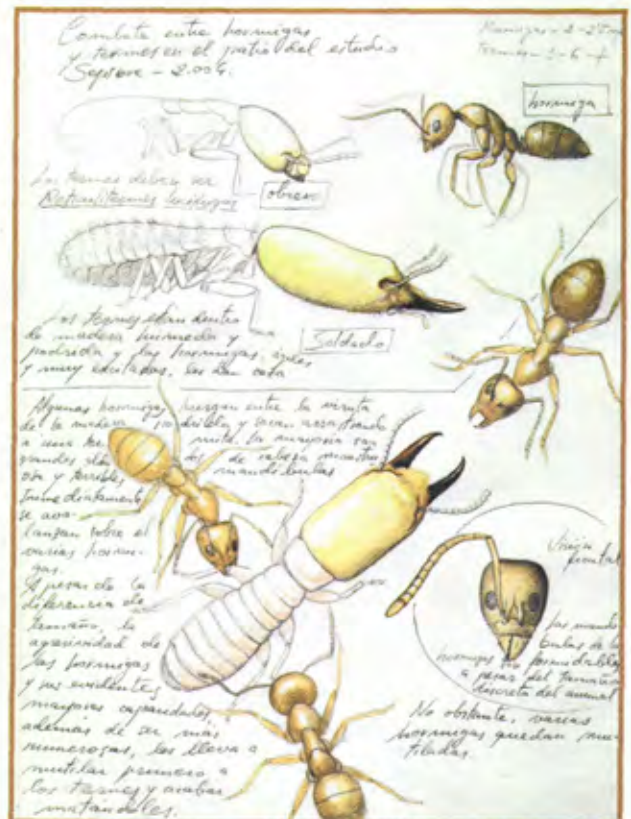 Combate entre hormigas
y termes en el patio del estudio
2.004.
hormiga
Los termes deben ser
obrero
Soldado
Los termes están dentro
de madera húmeda y
podrida y las hormigas, ágiles
y muy excitadas, les dan caza
Algunas hormigas hurgan entre la viruta
de la madera podrida y sacan arrastrando
a una ter mita. La mayoría son
grandes sol da dos de cabeza monstru
osa y terribles mandíbulas
Inmediatamente
se aba-
lanzan sobre el
varias hormi-
gas.
A pesar de la
diferencia de
tamaño, la
agresividad de
las hormigas
y sus evidentes
mayores capacidades,
además de ser más
numerosas, les lleva a
mutilar primero a
los termes y acabar
matándoles.
Visión
frontal
Las mandí
bulas de la
hormiga son formidables
a pesar del tamaño
discreto del animal
No obstante, varias
hormigas quedan mu
tiladas.